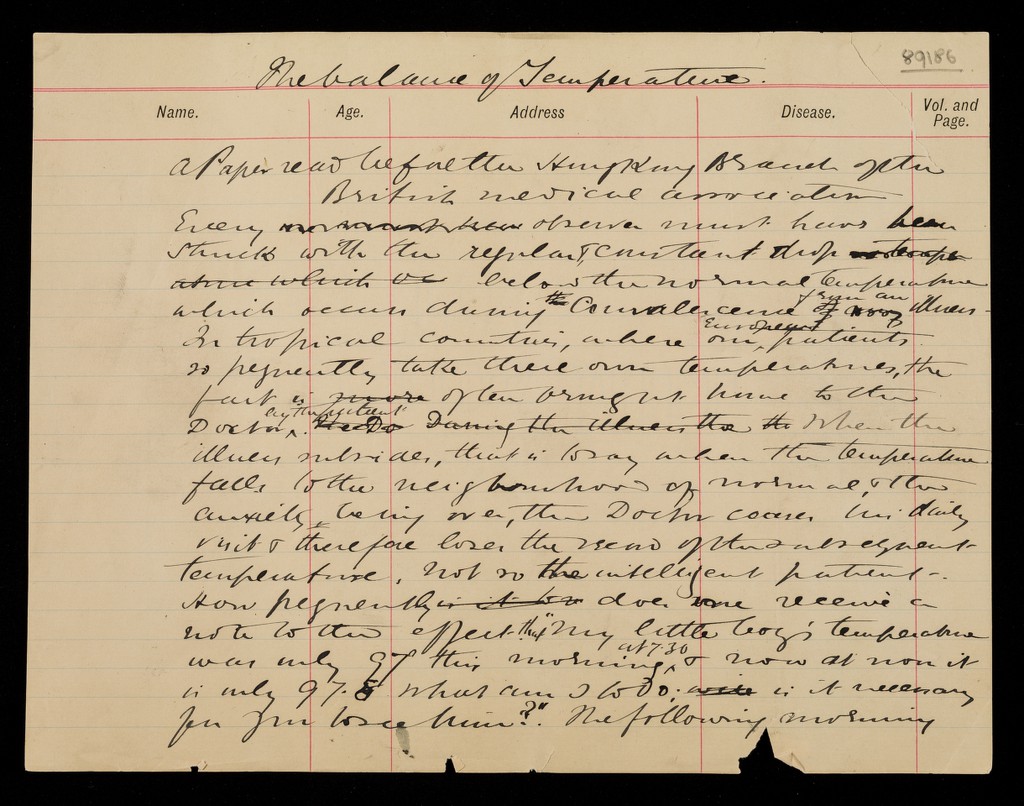 89186
The balance of Temperature.
Name. Age. Address Disease. Vol. and Page.
A Paper read before the HongKong Branch of the
British medical association
Every observer must have been
struck with the regular & constant drop
atme which below the normal temperature
which occurs during the Convalescence from an illness.
In tropical countries, where our European patients
so frequently take there own temperatures, the
fact is more often brought home to the
Doctor by the patient. The Do During the illness the the When the
illness subsides, that is to say when the temperature
falls to the neighbourhood of normal, & the
anxiety being over, the Doctor ceases his daily
visit & therefore loses the record of the subsequent
temperature, not so the intelligent patient.
How frequently is it to does one receive a
note to the effect that "My little boy's temperature
was only 97 this morning at 7.30 & now at noon it
is only 97.5 what am I to do; is it necessary
for you to see him?". The following morning